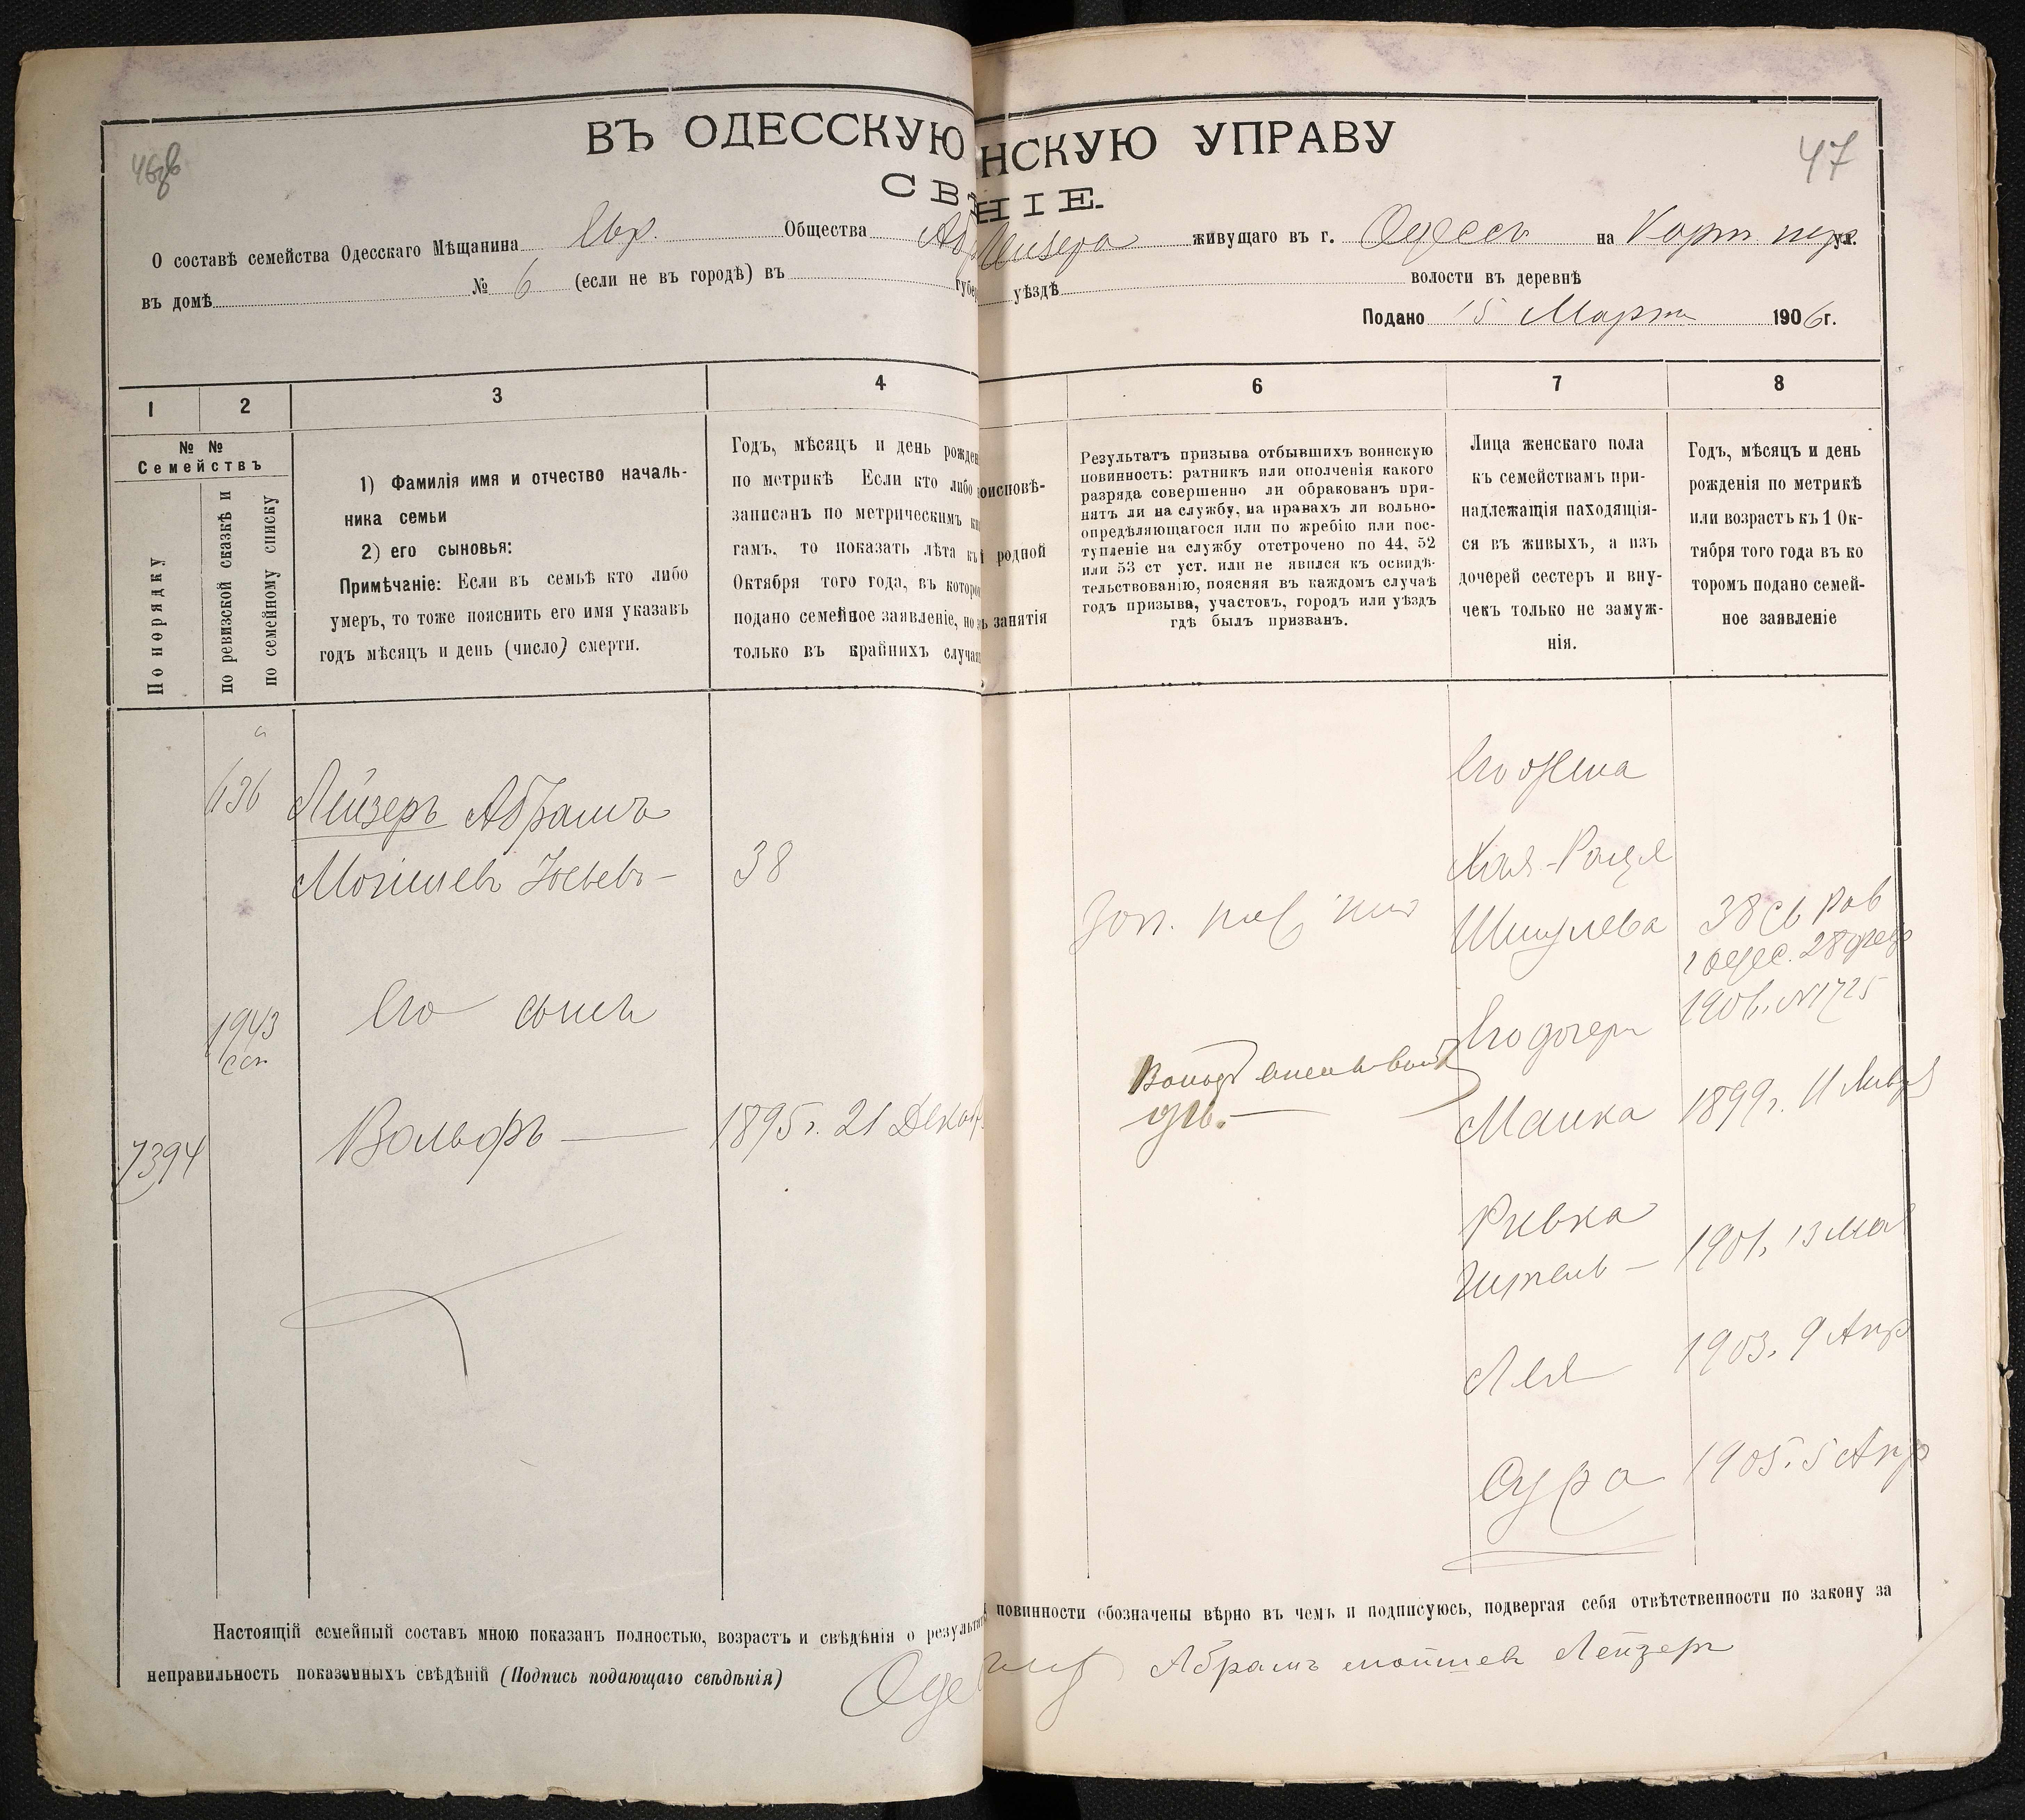 ВЪ ОДЕССКУЮ
НСКУЮ УПРАВУ
47
СВѢ
НІЕ.
О составѣ семейства Одесскаго Мѣщанина Евр. Общества
Лейзера живущаго въ г. Одессѣ на ул.
въ домѣ № 6 (если не въ городѣ) въ губе
уѣздѣ волости въ деревнѣ
Подано 15 Марта 1906 г.
1 2 3 4
6 7 8
№ №
Семействъ
По порядку
по ревизской сказкѣ и
по семейному списку
1) Фамилія имя и отчество началь-
ника семьи
2) его сыновья:
Примѣчаніе: Если въ семьѣ кто либо
умеръ, то тоже пояснить его имя указавъ
годъ мѣсяцъ и день (число) смерти.
Годъ, мѣсяцъ и день рожден
по метрикѣ Если кто либо
записанъ по метрическимъ кн
гамъ, то показать лѣта къ
Октября того года, въ которо
подано семейное заявленіе, но
только въ крайнихъ случая
оисповѣ-
родной
занятія
Результатъ призыва отбывшихъ воинскую
повинность: ратникъ или ополченія какого
разряда совершенно ли обракованъ при-
нятъ ли на службу, на правахъ ли вольно-
опредѣляющагося или по жребію или пос-
тупленіе на службу отстрочено по 44, 52
или 53 ст уст. или не явился къ освидѣ-
тельствованію, поясняя въ каждомъ случаѣ
годъ призыва, участокъ, городъ или уѣздъ
гдѣ былъ призванъ.
Лица женскаго пола
къ семействамъ при-
надлежащія находящія-
ся въ живыхъ, а изъ
дочерей сестеръ и вну-
чекъ только не замуж-
нія.
Годъ, мѣсяцъ и день
рожденія по метрикѣ
или возрастъ къ 1 Ок-
тября того года въ ко
торомъ подано семей-
ное заявленіе
636 Лейзеръ Абрамъ
38
Его сынъ
1943
7394 Вольфъ — 1895 г. 21 Декаб
Его жена
Хая-
38
28 февр
1906. №1725
Его дочери
Манка 1899 г. 11 Янв
Ривка
— 1901. 13 мая
Лея 1903. 9 Апр
Сура 1905. 5 Апр
Настоящій семейный составъ мною показанъ полностью, возрастъ и свѣдѣнія о результат
повинности обозначены вѣрно въ чемъ и подписуюсь, подвергая себя отвѣтственности по закону за
неправильность показанныхъ свѣдѣній (Подпись подающаго свѣдѣнія)
Абрамъ мойшевъ Лейзеръ